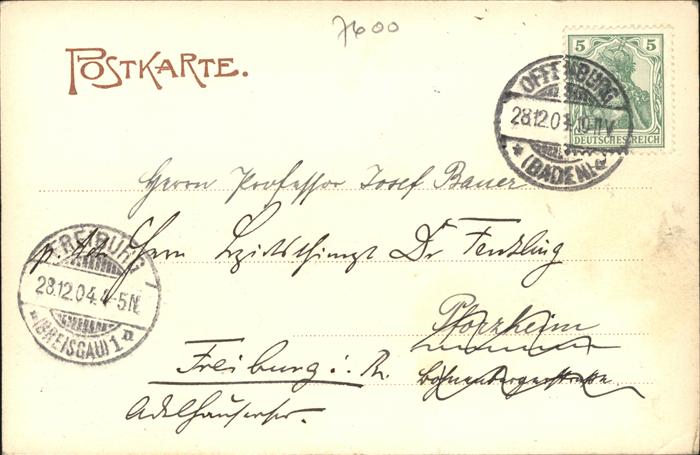 7600
POSTKARTE.
5 5
DEUTSCHES REICH
OFFENBURG
28.12.04. 10-11V
* (BADEN) *
Herrn Professor Josef Bauer
p. Adr. Herrn Dr Fentzling
FREIBURG
28.12.04. 4-5N.
* (BREISGAU) 1 *
Pforzheim
Freiburg i. Br.
Adelhauserstr.